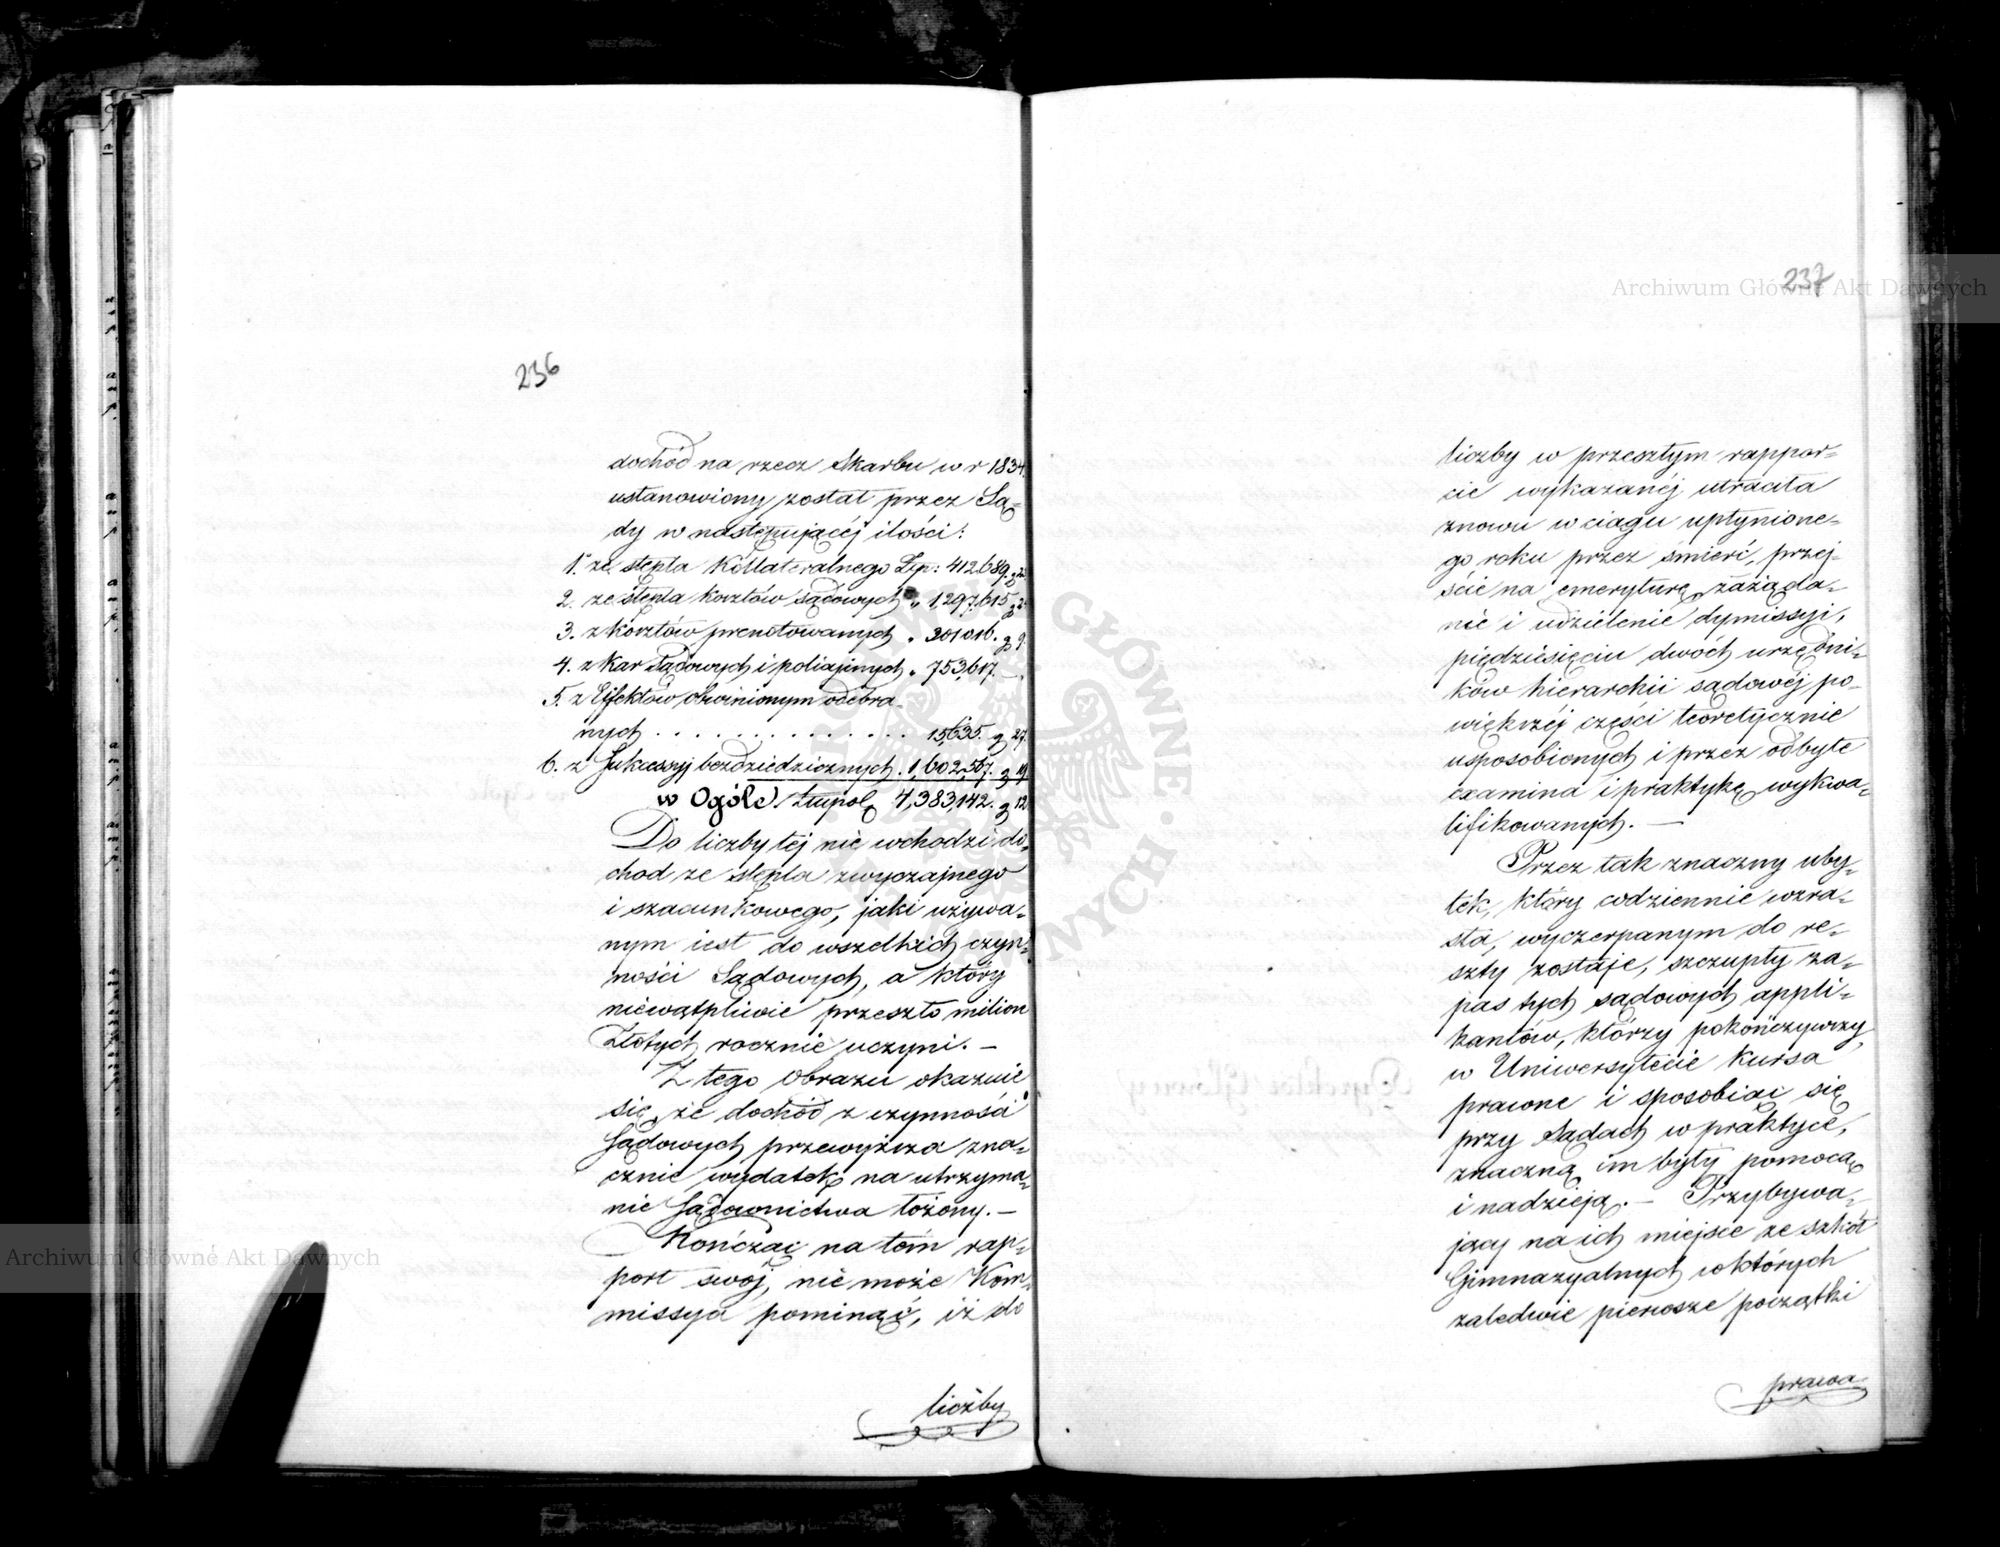 236
dochód na rzecz Skarbu w r 1834.
ustanowiony został przez Są-
dy w następującéj ilości:
1. ze stępla Kollateralnego Złp: 412,689. g
2. ze stępla kosztów sądowych „ 1,297,615 g
3. z kosztów prenotowanych „ 301,016. g 9.
4. z kar Sądowych i policyjnych „ 753,617. —
5. z Effektów obwinionym odebra-
nych . . . . . . . . . . . . . . 15,635. g 27.
6. z Sukcessyj bezdziedzicznych . 1,602,567. g 19.
w Ogóle Złtupol 4,383,142. g 12
Do liczby téj nie wchodzi do-
chod ze stępla zwyczajnego
i szacunkowego, jaki używa-
nym iest do wszelkich czyn-
ności Sądowych, a który
niewątpliwie przeszło milion
Złotych rocznie uczyni. —
Z tego obrazu okazuie
się, że dochód z czynności
Sądowych przewyższa zna-
cznie wydatek na utrzyma-
nie Sądownictwa łożony. —
Kończąc na tém rap-
port swój, nie może Kom-
missya pominąć, iż do
liczby
237
liczby w przeszłym rappor-
cie wykazanéj utraciła
znowu w ciągu upłynione-
go roku przez śmierć, przej-
ście na emeryturę, zażąda-
nie i udzielenie dymissyi,
pięćdziesięciu dwóch urzędni-
ków hierarchii sądowéj po-
większéj części teoretycznie
usposobionych i przez odbyte
examina i praktykę wykwa-
lifikowanych. —
Przez tak znaczny uby-
tek, który codziennie wzra-
sta, wyczerpanym do re-
szty zostaje, szczupły za-
pas tych sądowych appli-
kantów, którzy pokończywszy
w Uniwersytecie kursa
prawne i sposobiąc się
przy Sądach w praktyce,
znaczną im byli pomocą
i nadzieją. — Przybywa-
jący na ich miejsce ze szkół
Gimnazyalnych w których
zaledwie pierwsze początki
prawa
Archiwum Główne Akt Dawnych
Archiwum Główne Akt Dawnych